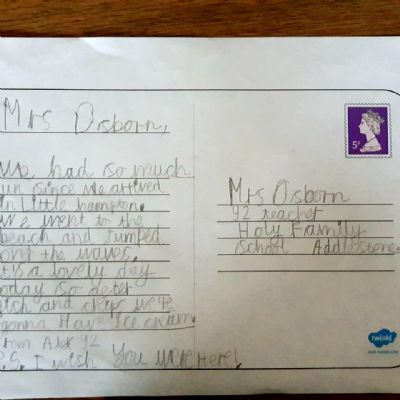 Mrs Osborn,
We had so much
fun since we arrived
in Little hampton.
We went to the
beach and Jumped
over the waves.
it's a lovely day
today so after
fish and chips we're
gonna Have Ice cream.
From Alex Y2
P.S. I wish You were Here!
Mrs Osborn
Y2 teacher
Holy Family
School Addlestone.
twinkl